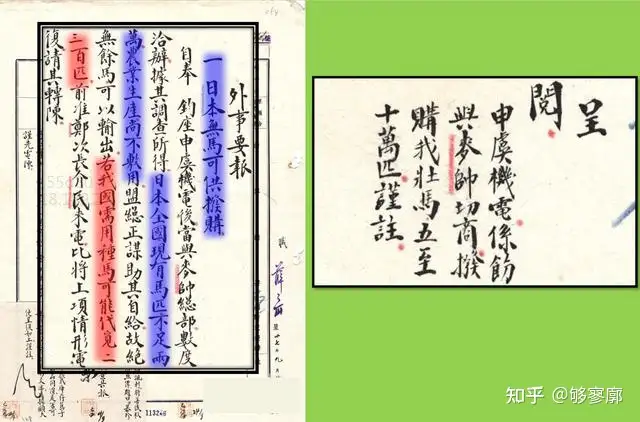 外事要報
一 日本無馬可供撥購
自奉 鈞座申虞機電後當與麥帥總部數度
洽辦據其調查所得日本全國現有馬匹不足兩
萬農業生產尚不敷用盟總正謀助其自給故絕
無餘馬可以輸出若我國需用種馬可能代覓二
三百匹前准鄭次長介民來電比將上項情形電
復請其轉陳
113246
呈
閱
申虞機電係飭
與麥帥切商撥
購我壯馬五至
十萬匹謹註
知乎 @够寥廓